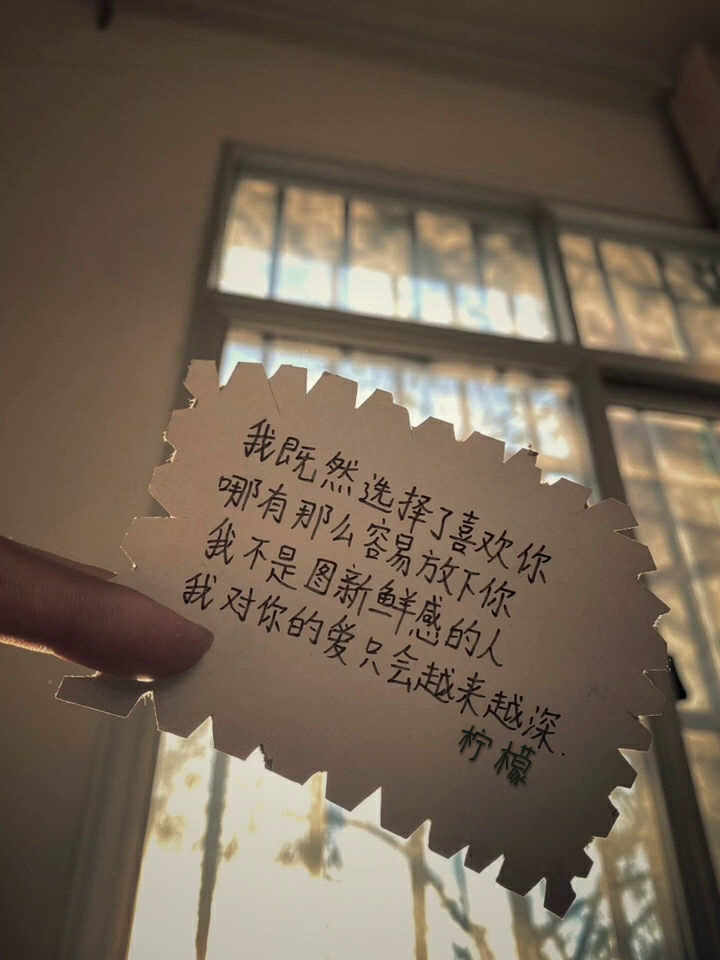 我既然选择了喜欢你
哪有那么容易放下你
我不是图新鲜感的人
我对你的爱只会越来越深.
柠檬